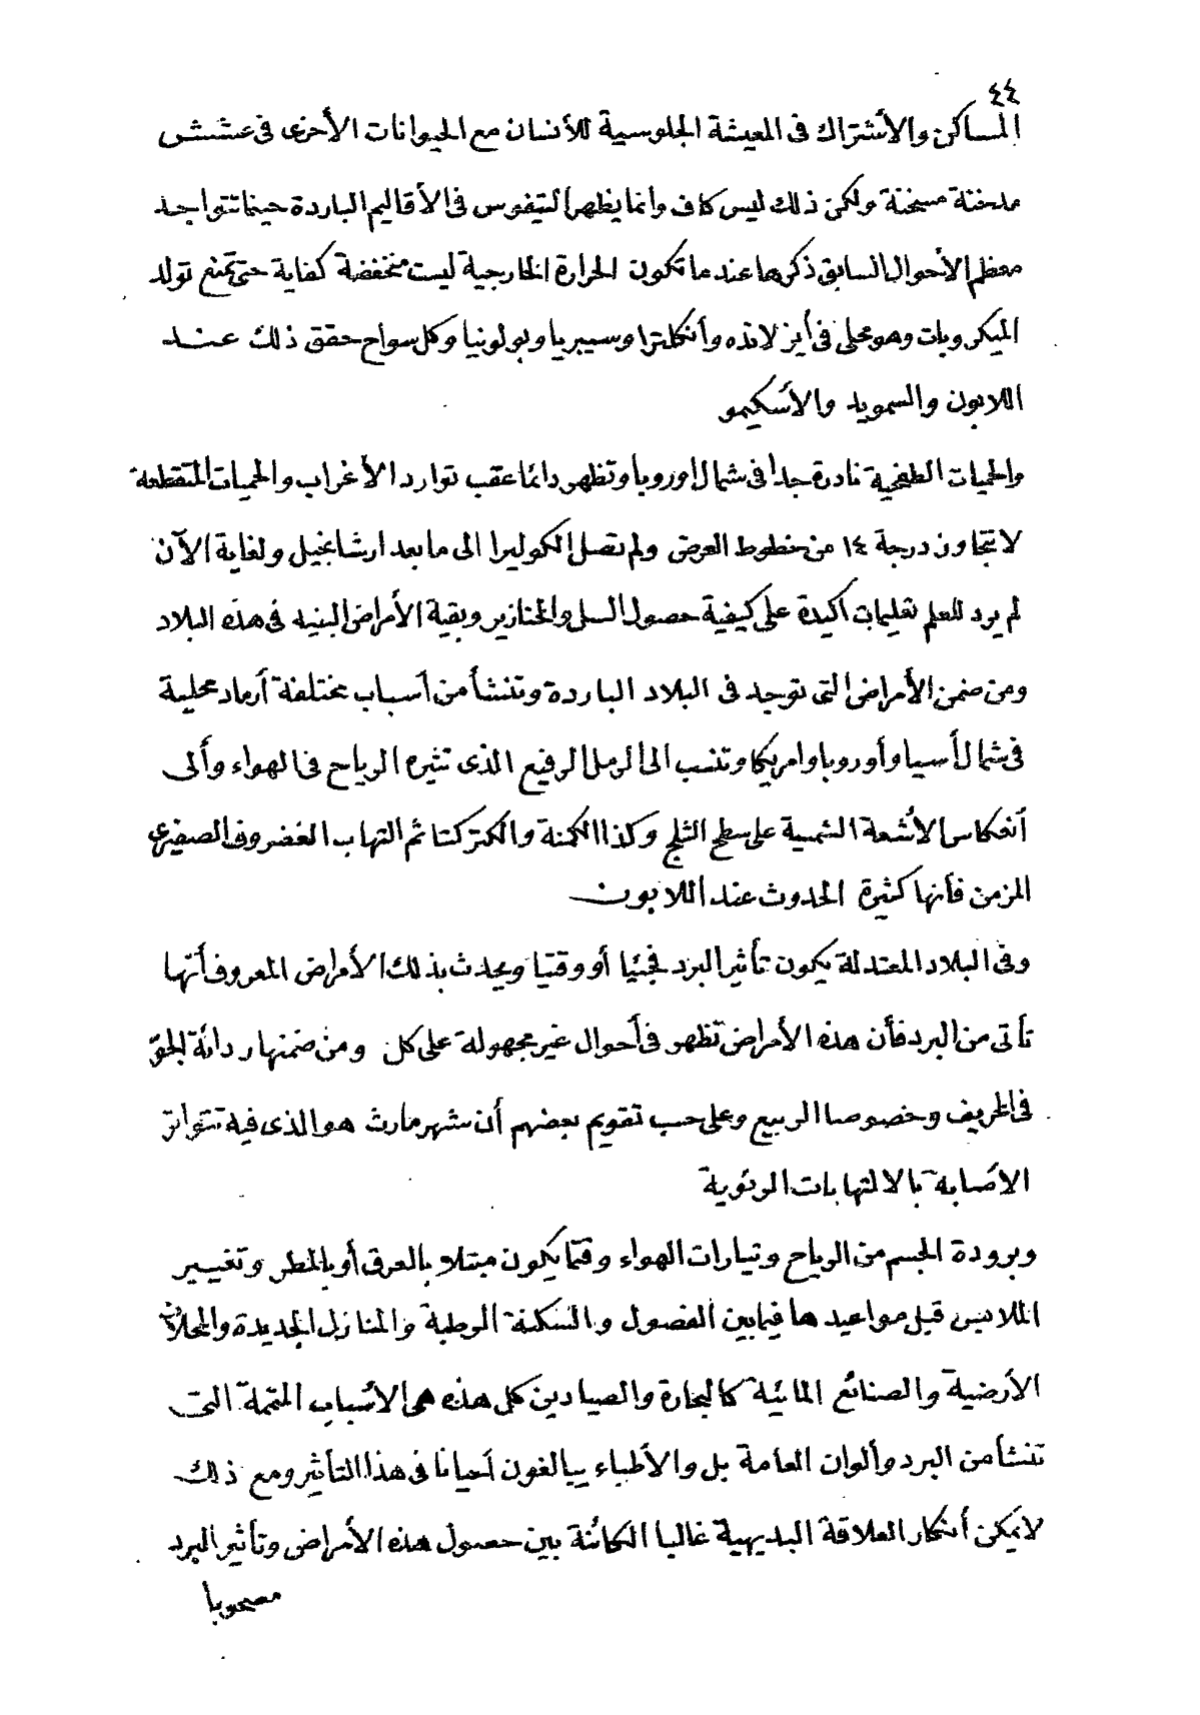 ٤٤
المساكن والأشتراك فى المعيشة الجلوسية للأنسان مع الحيوانات الأخرى فى عشش
مدخنة مسخنة ولكن ذلك ليس كاف وانما يظهر التيفوس فى الأقاليم الباردة حينما تتواجد
معظم الأحوال السابق ذكرها عند ما تكون الحرارة الخارجية ليست منخفضة كفاية حتى تمنع تولد
الميكروبات وهو محلى فى أيزلانده وأنكلترا وسيبريا وبولونيا وكل سواح حقق ذلك عند
اللابون والسمويد والأسكيمو
والحميات الطفحية نادرة جدا فى شمال اوروبا وتظهر دائما عقب توارد الأغراب والحميات المتقطعة
لا تتجاوز درجة ١٤ من خطوط العرض ولم تصل الكوليرا الى ما بعد ارشانجيل ولغاية الآن
لم يرد للعلم تعليمات اكيدة على كيفية حصول السل والخنازير وبقية الأمراض البنيه فى هذه البلاد
ومن ضمن الأمراض التى توجد فى البلاد الباردة وتنشأ من أسباب مختلفة أرماد محلية
فى شمال أسيا وأوروبا وامريكا وتنسب الى الرمل الرفيع الذى تثيره الرياح فى الهواء وألى
أنعكاس الأشعة الشمسية على سطح الثلج وكذا الكمنة والكتركتا ثم التهاب الغضروف الصفيرى
المزمن فأنها كثيرة الحدوث عند اللابون
وفى البلاد المعتدلة يكون تأثير البرد فجئيا أو وقتيا ويحدث بذلك الأمراض المعروف أنها
تأتى من البرد فأن هذه الأمراض تظهر فى أحوال غير مجهولة على كل ومن ضمنها ردائة الجوّ
فى الخريف وخصوصا الربيع وعلى حسب تقويم بعضهم أن شهر مارث هو الذى فيه تتواتر
الأصابة بالالتهابات الرئوية
وبرودة الجسم من الرياح وتيارات الهواء وقتما يكون مبتلا بالعرق أو بالمطر وتغيير
الملابس قبل مواعيدها فيما بين الفصول والسكنة الرطبة والمنازل الجديدة والمحلات
الأرضية والصنائع المائية كالبحارة والصيادين كل هذه هى الأسباب المتممة التى
تنشأ من البرد وألوان العامة بل والأطباء يبالغون أحيانا فى هذا التأثير ومع ذلك
لا يمكن أنكار العلاقة البديهية غالبا الكائنة بين حصول هذه الأمراض وتأثير البرد
مصحوبا